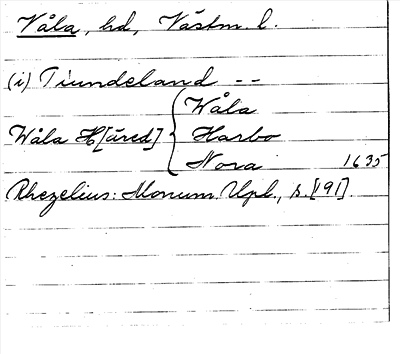 Våla, hd, Västm. l.
(i) Tiundeland --
Wåla
Wåla H[äred] { Harbo
Nora 1635
Rhezelius: Monum. Upl., s. [191].